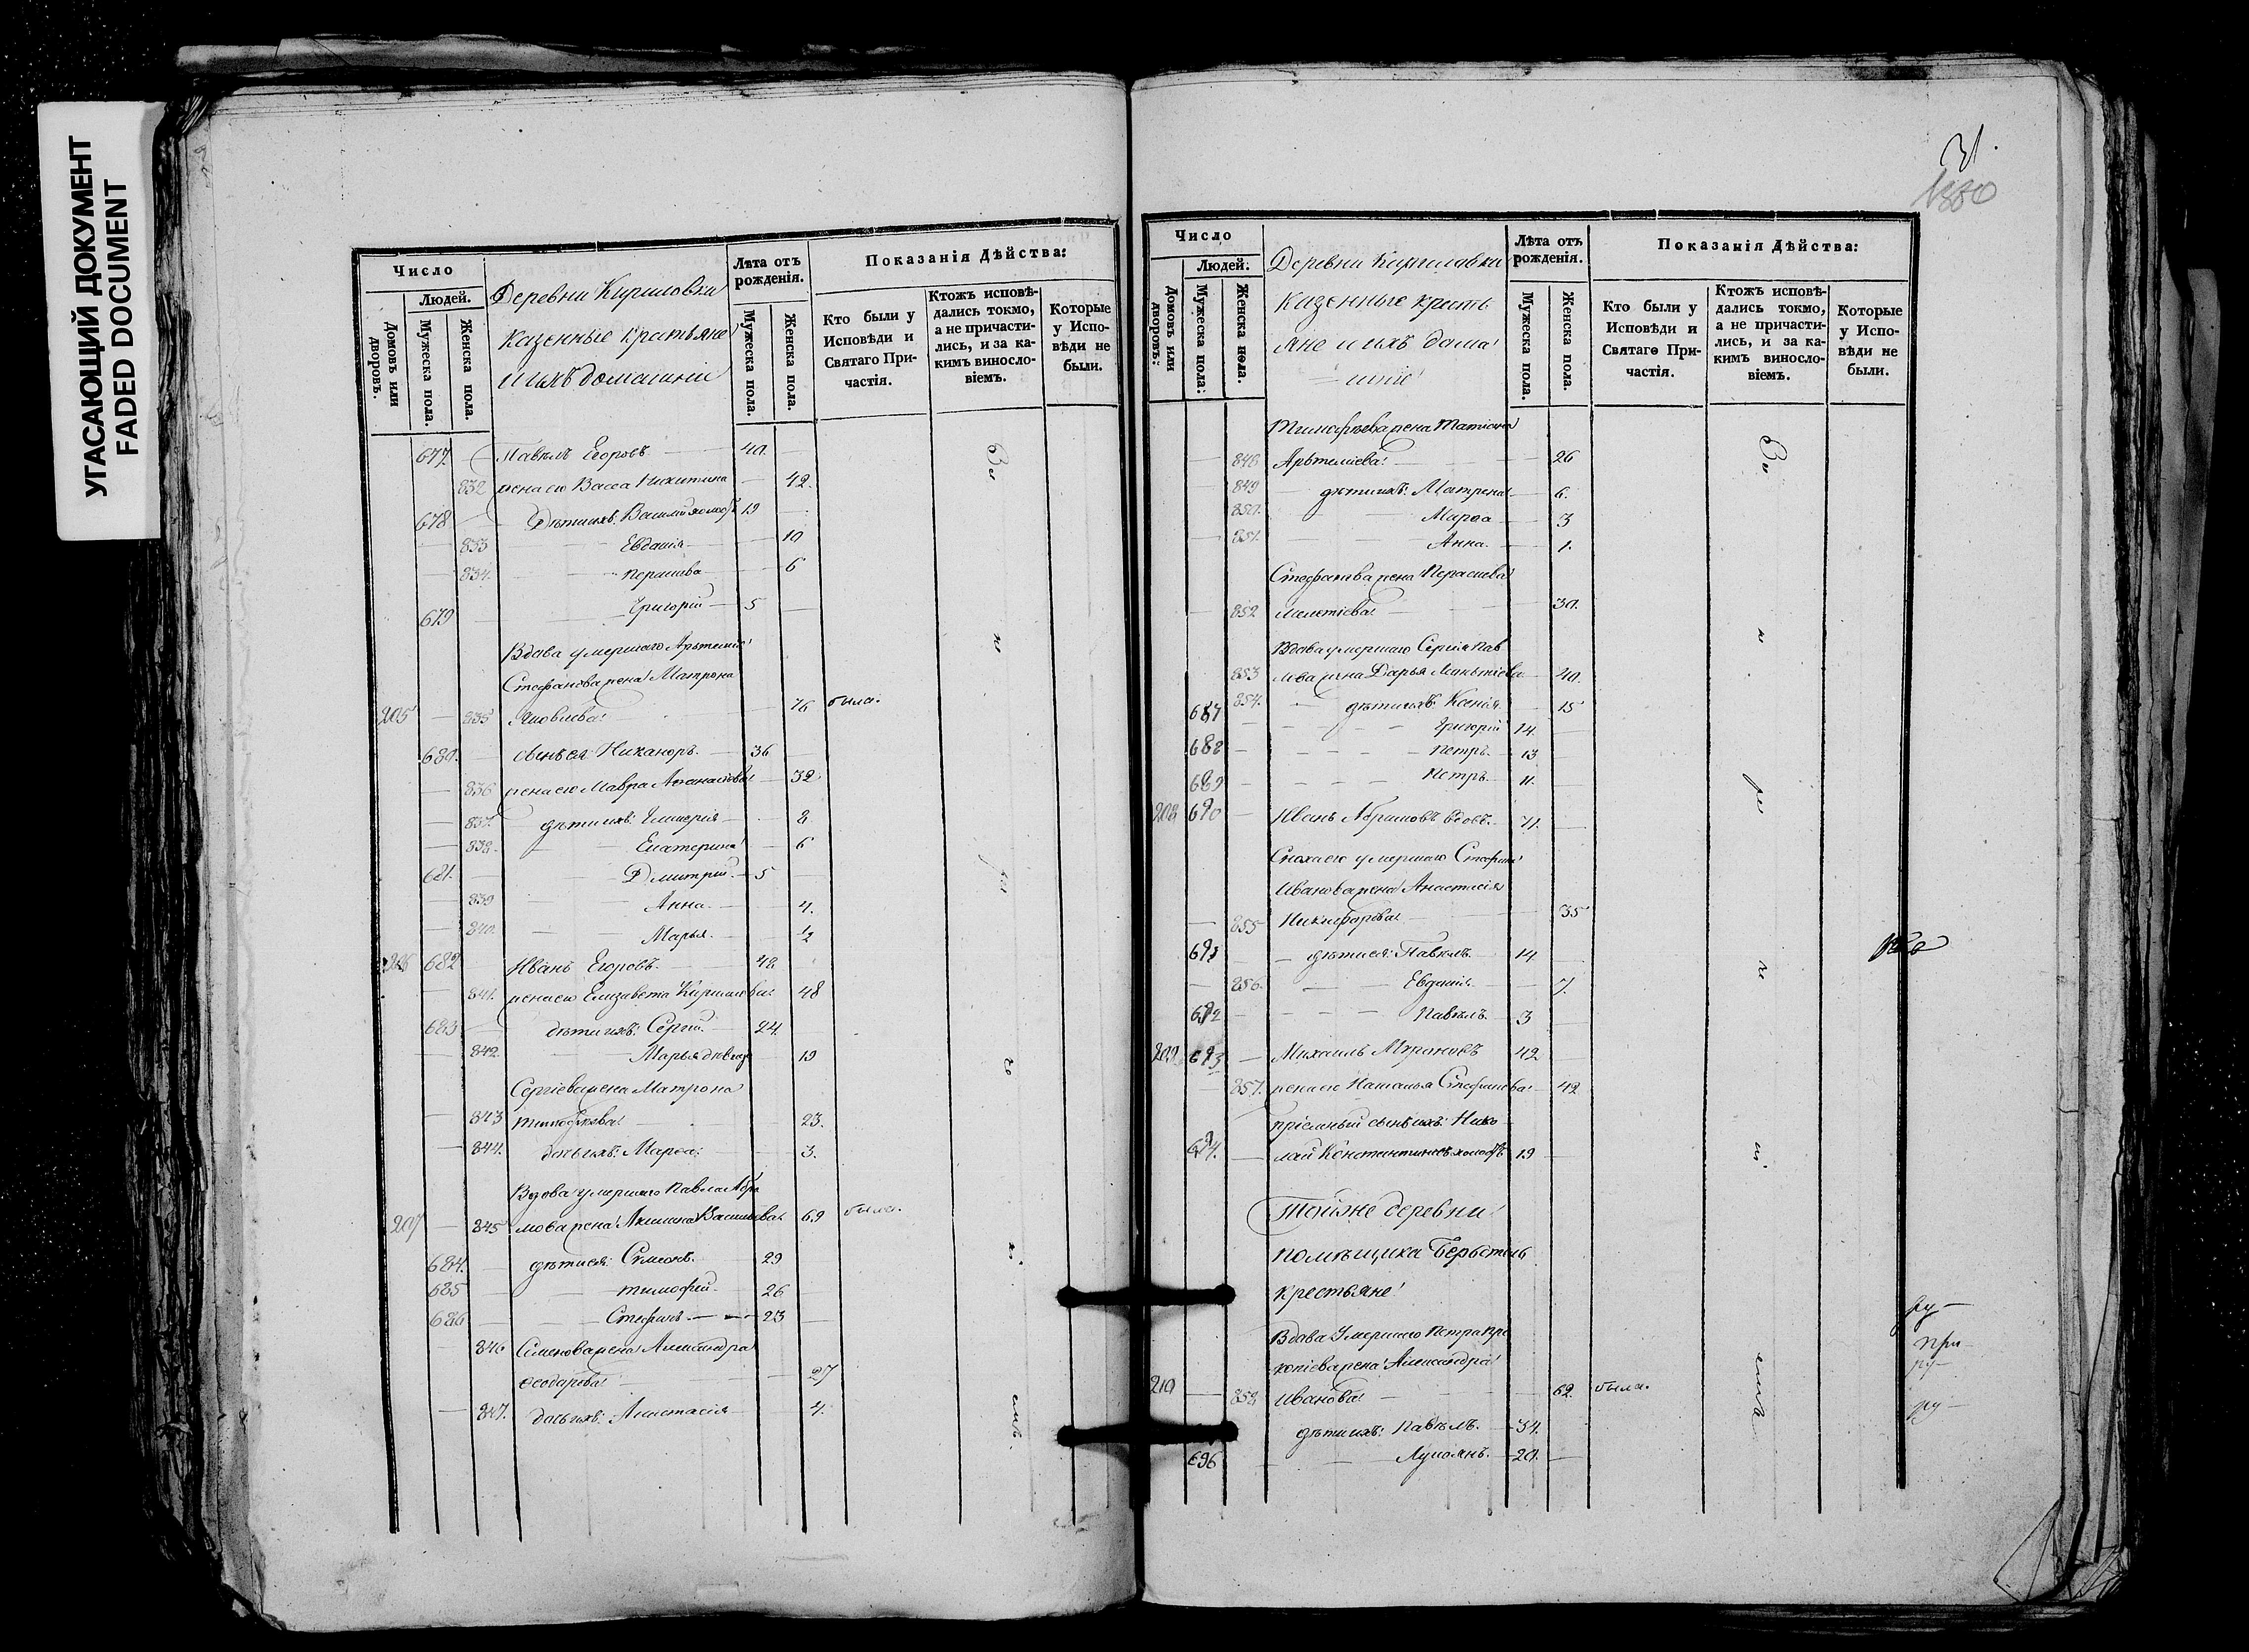 УГАСАЮЩИЙ ДОКУМЕНТ
FADED DOCUMENT
Число
Людей.
Домовъ или дворовъ.
Мужеска пола.
Женска пола.
Деревни Кириловки
казенные крестьяне
и ихъ домашнии
Лѣта отъ рожденія.
Мужеска пола.
Женска пола.
Показанія Дѣйства:
Кто были у Исповѣди и Святаго Причастія.
Ктожъ исповѣдались токмо, а не причастились, и за какимъ винословіемъ.
Которые у Исповѣди не были.
677. Павелъ Егоровъ 40.
832 жена его Васса Никитина 42.
678 Дѣти ихъ: Василій холос. 19
833 Евдакія 10
834. Пераскева 6
679 Григорій 5
Вдова умершаго Артемия
Стефанова жена Матрона
205 835 Яковлева 76 была.
680. сынъ ея Никаноръ. 36
836 жена его Мавра Афанасьева 32.
837. дѣти ихъ: Гликерія 8
838. Екатерина 6
681. Дмитрій. 5
839 Анна. 4.
840. Марья. 1/2
206 682 Иванъ Егоровъ. 48
841. жена его Елизавета Кирилова 48
683 дѣти ихъ: Сергій. 24.
842. Марья дѣвица 19
Сергіева жена Матрона
843 Тимофѣева 23.
844. дочь ихъ: Марѳа. 3.
Вдова умершаго Павла Абра
207 845 мова жена Акилина Васильева. 69 была.
684. дѣти ея: Симеонъ. 29
685 Тимофей. 26
686 Стефанъ. 23
846 Семенова жена Александра
Ѳеодорова 27
847. дочь ихъ: Анастасія 4.
31.
1880
Число
Людей.
Домовъ или дворовъ.
Мужеска пола.
Женска пола.
Деревни Кириловки
казенные кресть
яне и ихъ дома
шніе
Лѣта отъ рожденія.
Мужеска пола.
Женска пола.
Показанія Дѣйства:
Кто были у Исповѣди и Святаго Причастія.
Ктожъ исповѣдались токмо, а не причастились, и за какимъ винословіемъ.
Которые у Исповѣди не были.
Тимофѣева жена Татіана
848 Артеміева. 26
849 дѣти ихъ: Матрена 6.
850. Марѳа 3
851. Анна. 1.
Стефанова жена Пераскева
852 Мелетіева 30.
Вдова умершаго Сергія Пав
853 лова жена Дарья 40.
854. дѣти ихъ: Ксенія. 15
687 Григорій 14.
688 Петръ. 13
689 Петръ. 11.
208 690 Иванъ Абрамовъ вдовъ. 71.
Сноха его умершаго Стефана
Иванова жена Анастасія
855 Никифорова 35
691 дѣти ея: Павелъ. 14.
856. Евдокія. 7.
692 Павелъ. 3
209 693 Михаилъ Мироновъ 42
857. жена его Наталья Стефанова 42
пріемный сынъ ихъ: Нико
694. лай Константиновъ холос. 19
Тойже деревни
помѣщика Берестель
крестьяне
Вдова умершаго Петра Про
копіева жена Александра
210 858 Иванова 62. была.
дѣти ихъ: Павелъ. 34.
696 Лукоянъ. 20.